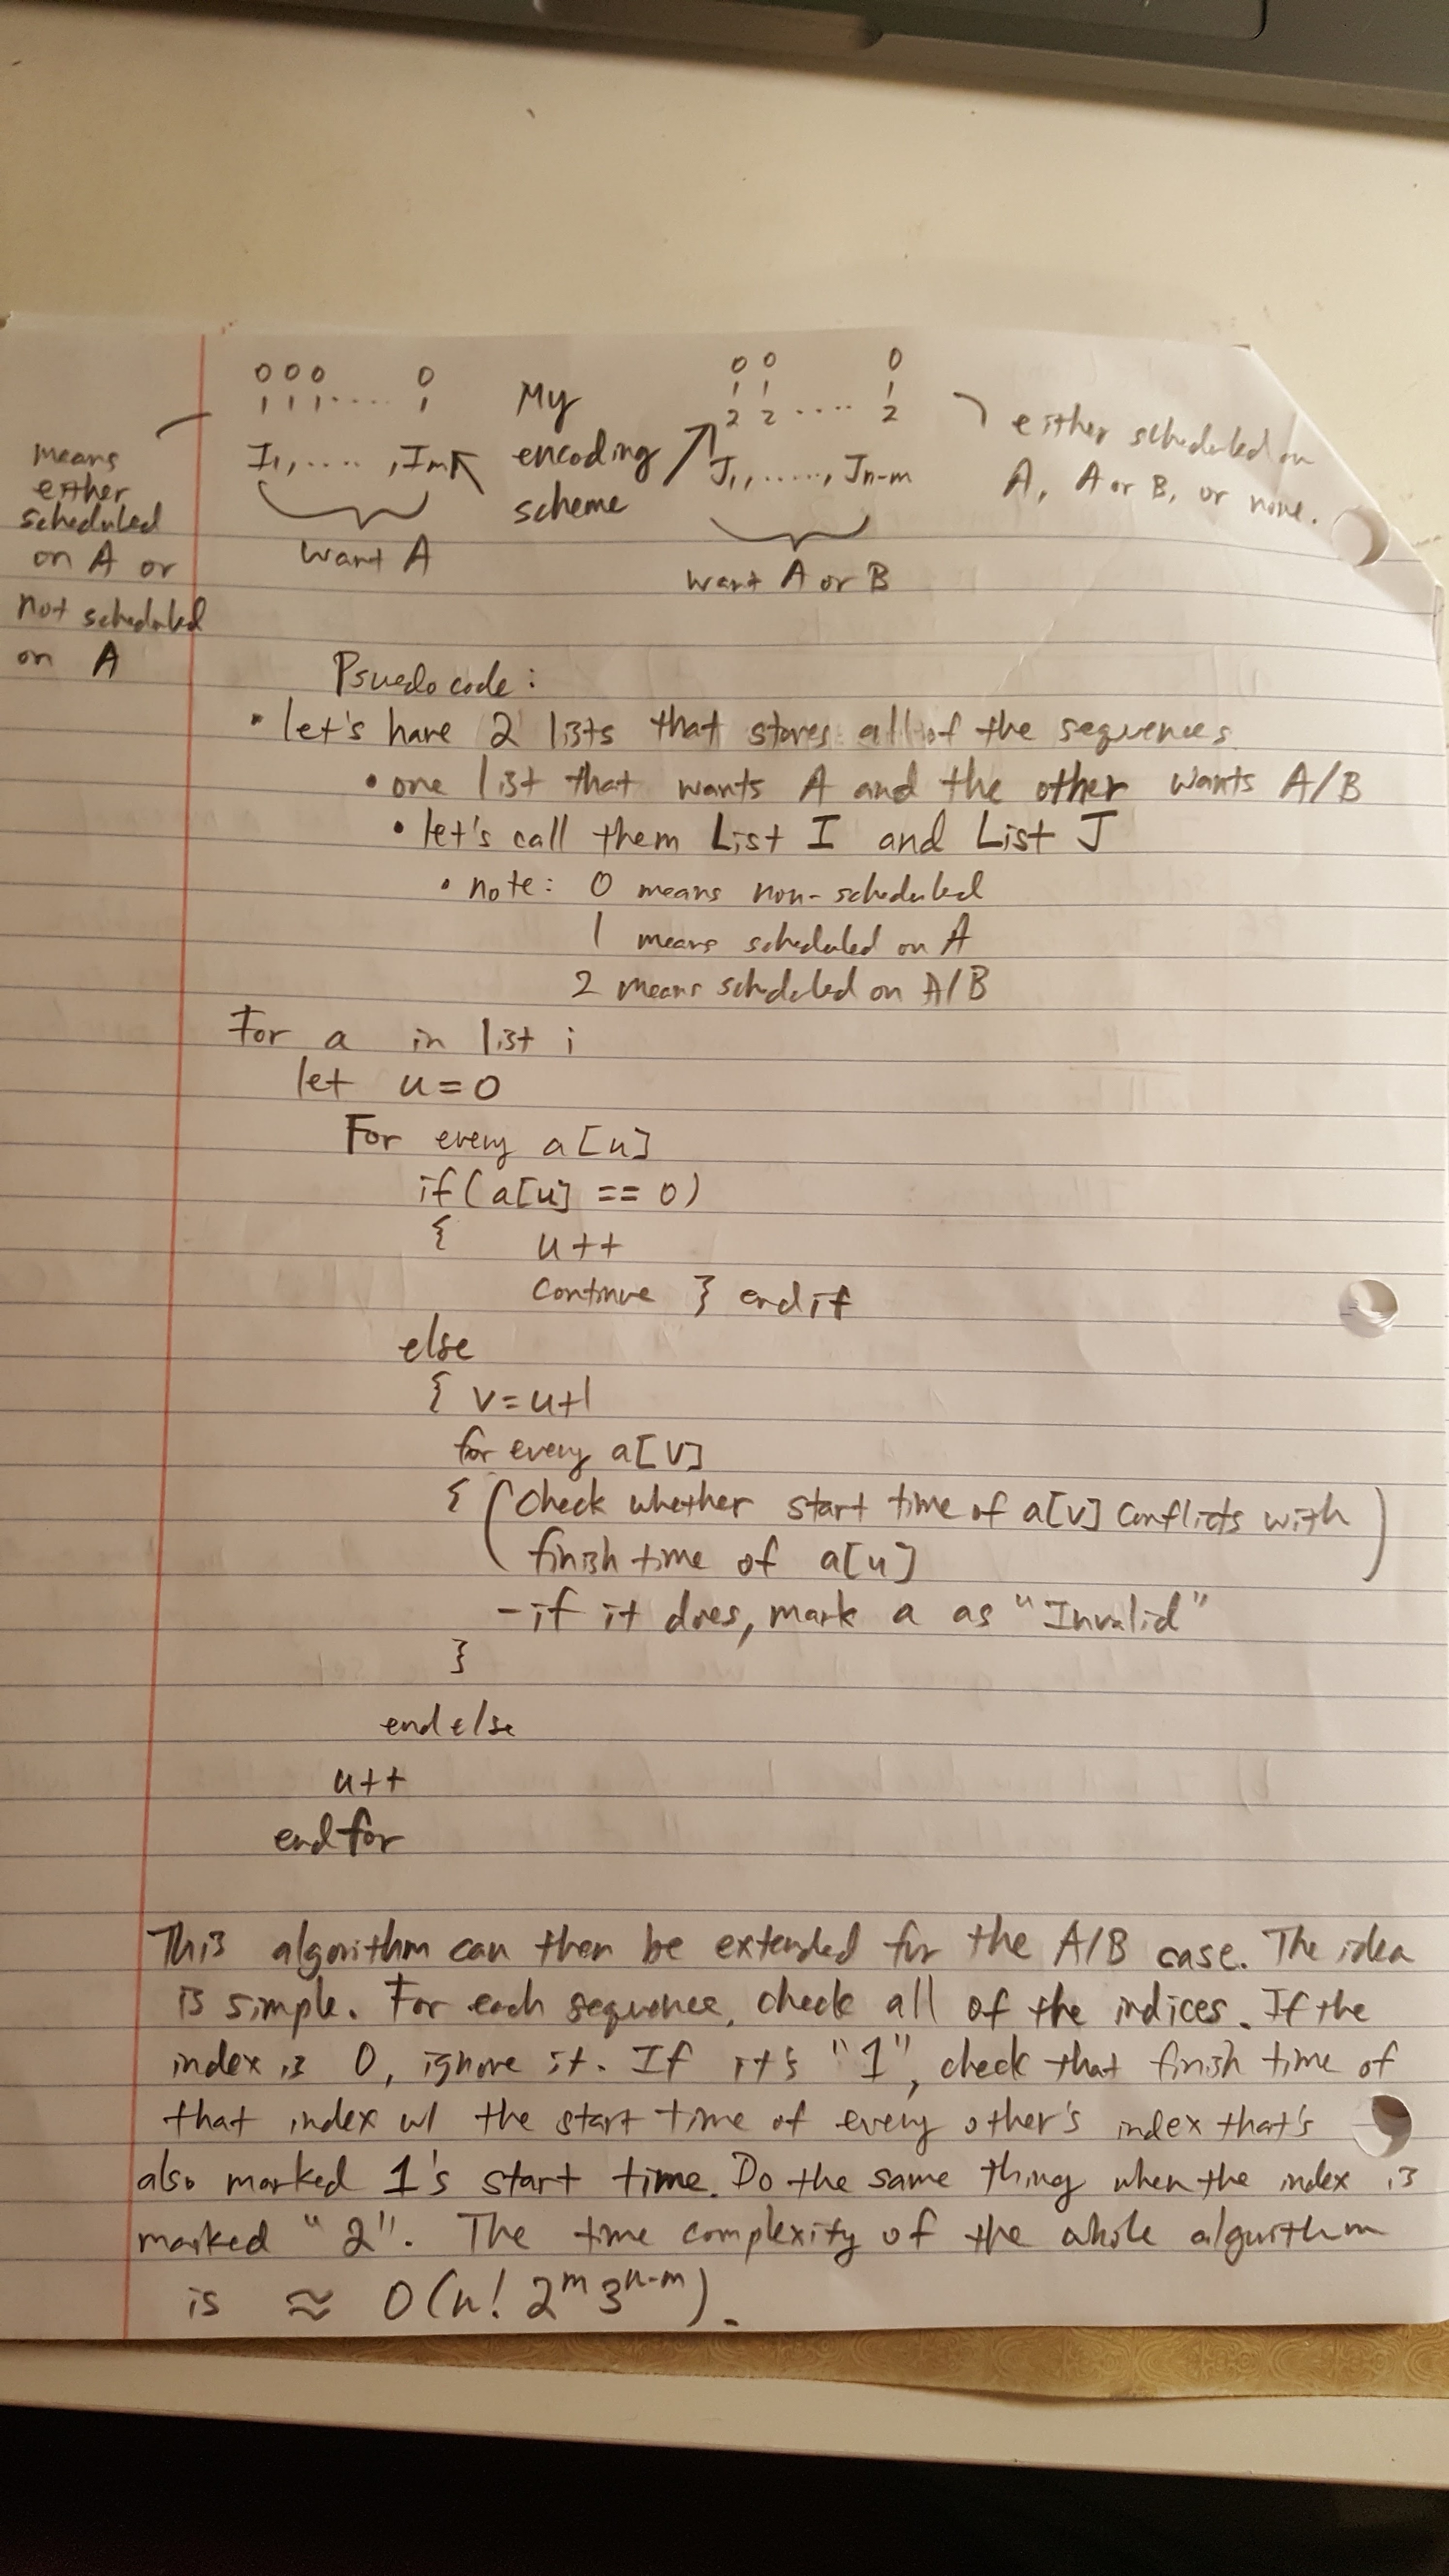 0 0 0 0
1 1 1 ..... 1
I1, ..... , Im
want A
means
either
scheduled
on A or
not scheduled
on A
My
encoding
scheme
0 0 0
1 1 1
2 2 ..... 2
J1, ......, Jn-m
want A or B
either scheduled on
A, A or B, or none.
Psuedo code:
• let's have 2 lists that stores all of the sequences
• one list that wants A and the other wants A/B
• let's call them List I and List J
• note: 0 means non-scheduled
1 means scheduled on A
2 means scheduled on A/B
For a in list i
let u=0
For every a[u]
if(a[u] == 0)
{ u++
continue } endif
else
{ v=u+1
for every a[v]
{ (check whether start time of a[v] conflicts with
finish time of a[u])
- if it does, mark a as "Invalid"
}
endelse
u++
endfor
This algorithm can then be extended for the A/B case. The idea
is simple. For each sequence, check all of the indices. If the
index is 0, ignore it. If it's "1", check that finish time of
that index w/ the start time of every other's index that's
also marked 1's start time. Do the same thing when the index is
marked "2". The time complexity of the whole algorithm
is ≈ O(n! 2^m 3^n-m).